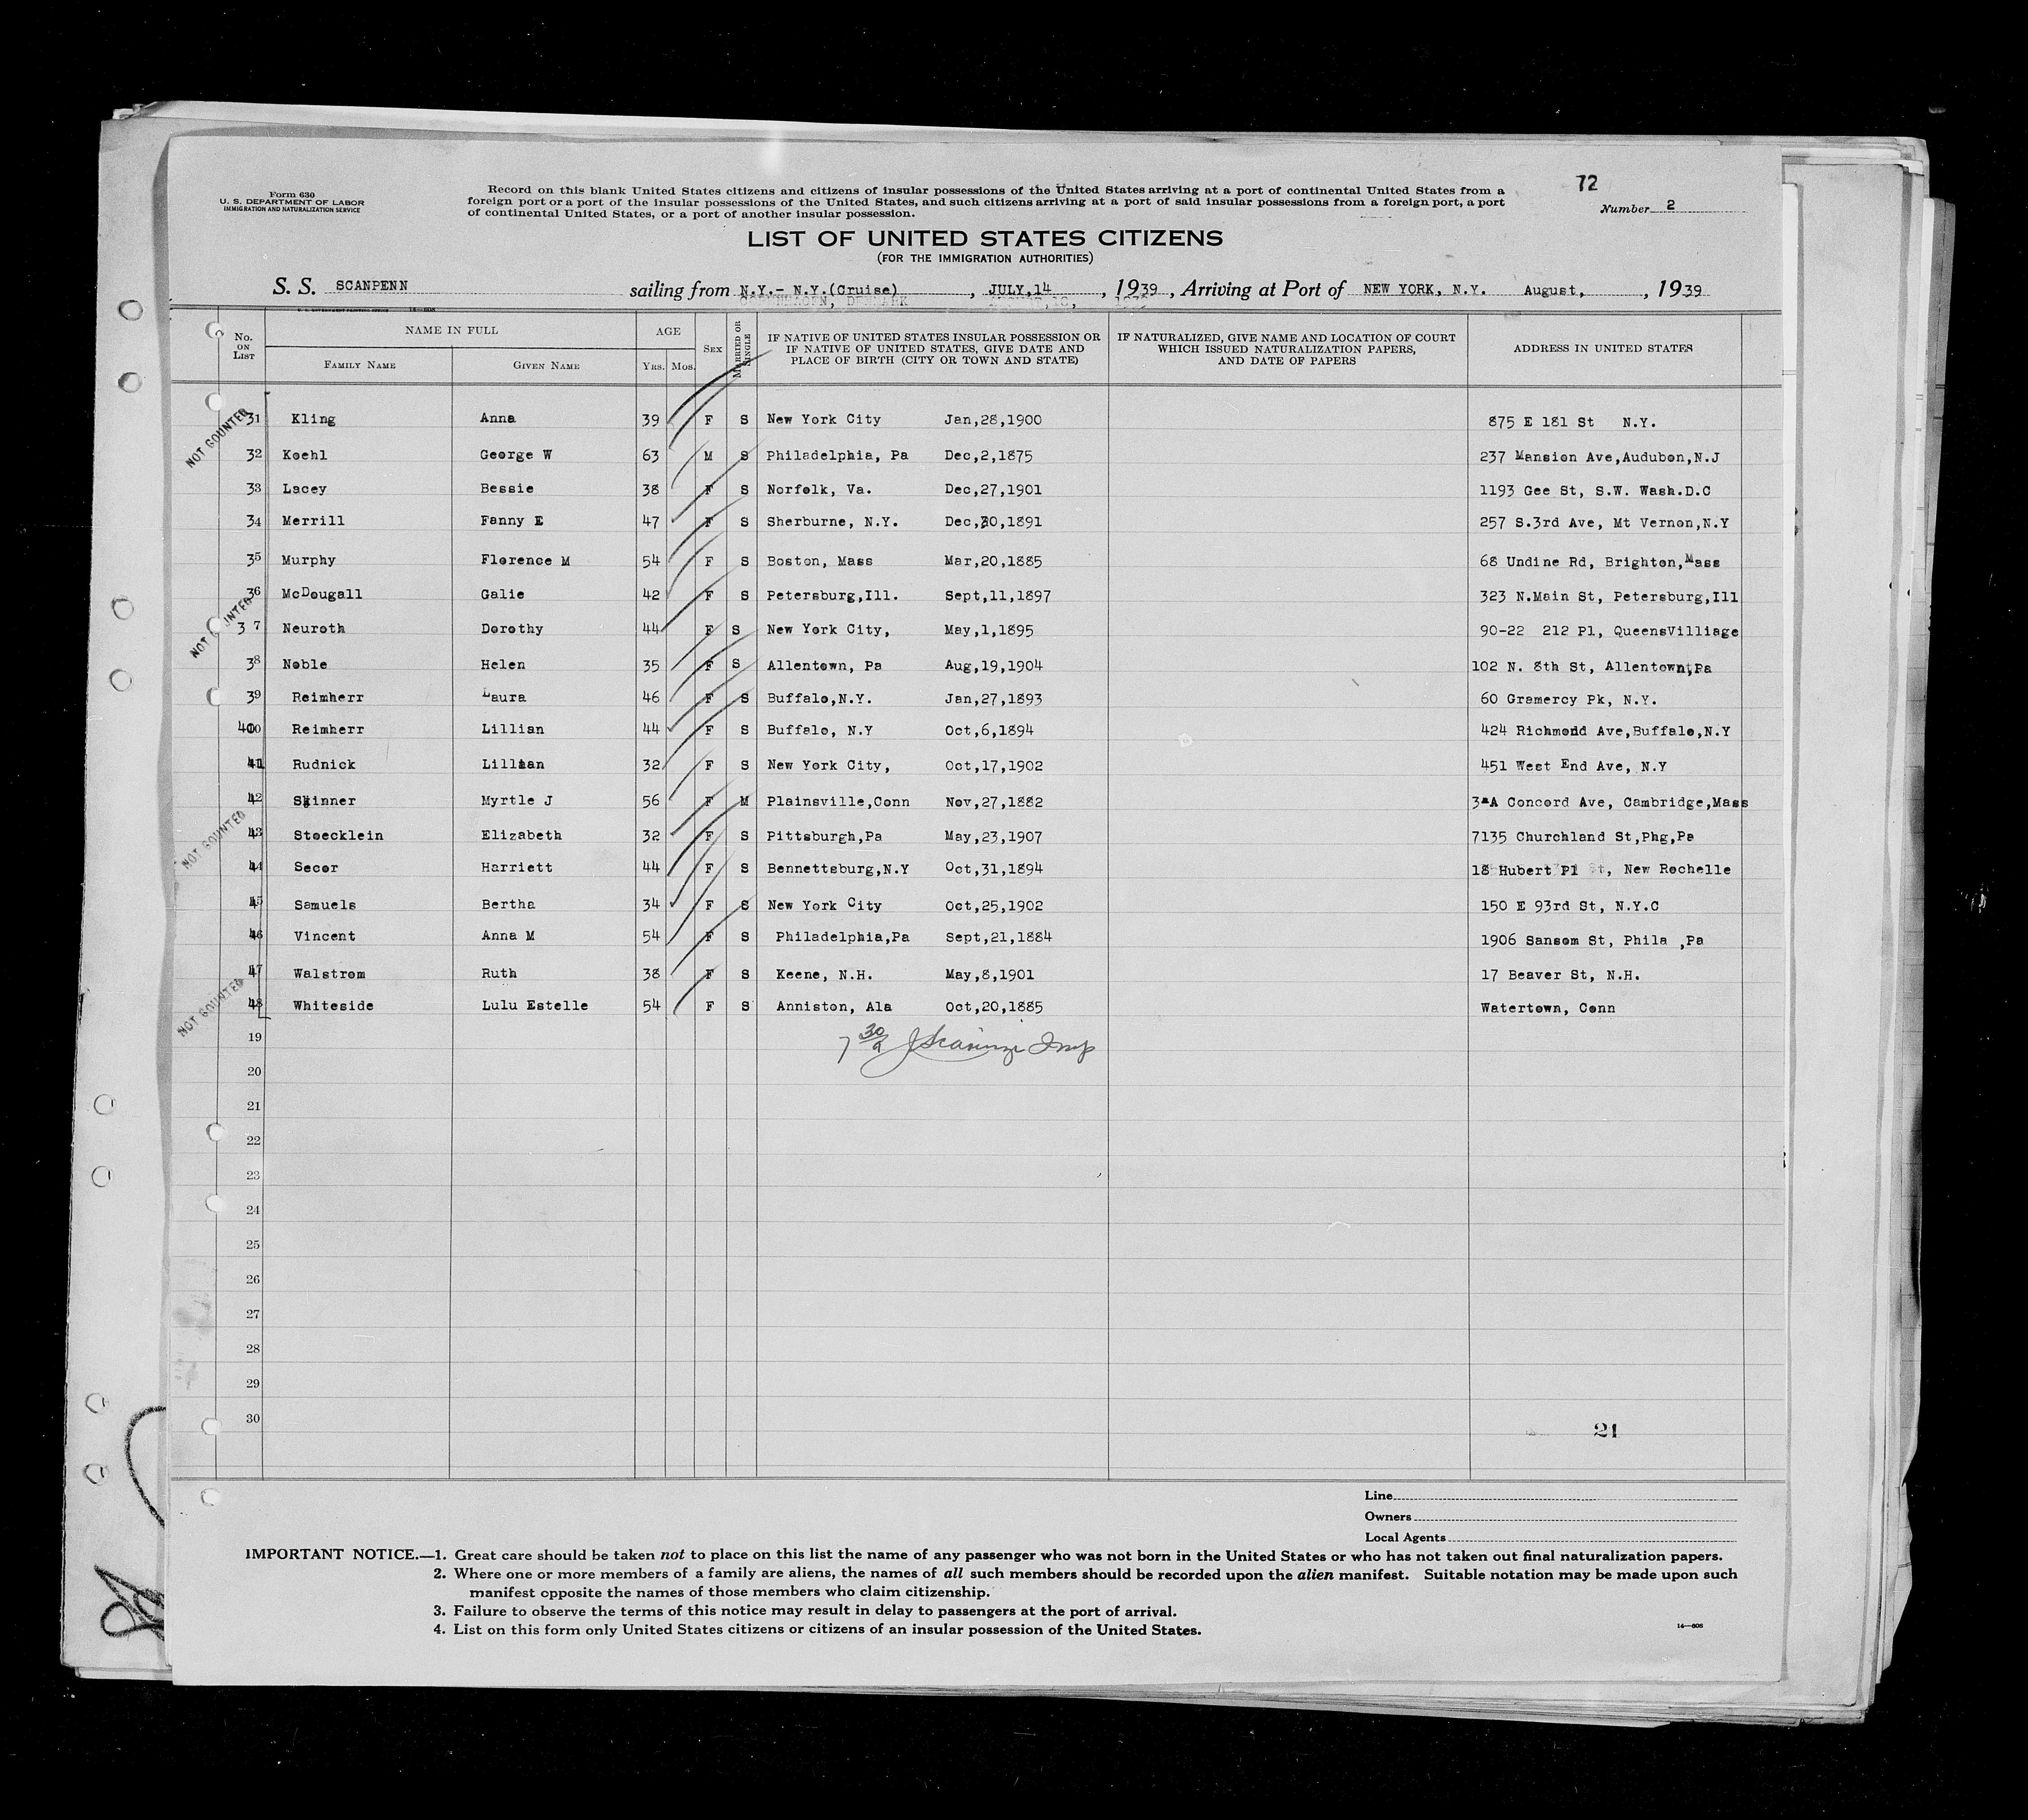 Form 630
U. S. DEPARTMENT OF LABOR
IMMIGRATION AND NATURALIZATION SERVICE
Record on this blank United States citizens and citizens of insular possessions of the United States arriving at a port of continental United States from a
foreign port or a port of the insular possessions of the United States, and such citizens arriving at a port of said insular possessions from a foreign port, a port
of continental United States, or a port of another insular possession.
72
Number 2
LIST OF UNITED STATES CITIZENS
(FOR THE IMMIGRATION AUTHORITIES)
S. S. SCANPENN sailing from N.Y.- N.Y.(Cruise), JULY,14, 1939, Arriving at Port of NEW YORK, N.Y. August, , 1939
COPENHAGEN, DENMARK
No. ON LIST
NAME IN FULL
FAMILY NAME GIVEN NAME
AGE
YRS. MOS.
SEX
MARRIED OR SINGLE
IF NATIVE OF UNITED STATES INSULAR POSSESSION OR
IF NATIVE OF UNITED STATES, GIVE DATE AND
PLACE OF BIRTH (CITY OR TOWN AND STATE)
IF NATURALIZED, GIVE NAME AND LOCATION OF COURT
WHICH ISSUED NATURALIZATION PAPERS,
AND DATE OF PAPERS
ADDRESS IN UNITED STATES
NOT COUNTED
31 Kling Anna 39 F S New York City Jan,28,1900 875 E 181 St N.Y.
32 Koehl George W 63 M S Philadelphia, Pa Dec,2,1875 237 Mansion Ave,Audubon,N.J
33 Lacey Bessie 38 F S Norfolk, Va. Dec,27,1901 1193 Gee St, S.W. Wash.D.C
34 Merrill Fanny E 47 F S Sherburne, N.Y. Dec,30,1891 257 S.3rd Ave, Mt Vernon,N.Y
35 Murphy Florence M 54 F S Boston, Mass Mar,20,1885 68 Undine Rd, Brighton,Mass
36 McDougall Galie 42 F S Petersburg,Ill. Sept,11,1897 323 N.Main St, Petersburg,Ill
NOT COUNTED
37 Neuroth Dorothy 44 F S New York City, May,1,1895 90-22 212 Pl, QueensVilliage
38 Noble Helen 35 F S Allentown, Pa Aug,19,1904 102 N. 8th St, Allentown,Pa
39 Reimherr Laura 46 F S Buffalo,N.Y. Jan,27,1893 60 Gramercy Pk, N.Y.
40 Reimherr Lillian 44 F S Buffalo, N.Y Oct,6,1894 424 Richmond Ave,Buffalo,N.Y
41 Rudnick Lillian 32 F S New York City, Oct,17,1902 451 West End Ave, N.Y
42 Skinner Myrtle J 56 F M Plainsville,Conn Nov,27,1882 3-A Concord Ave, Cambridge,Mass
NOT COUNTED
43 Stoecklein Elizabeth 32 F S Pittsburgh,Pa May,23,1907 7135 Churchland St,Phg,Pa
44 Secor Harriett 44 F S Bennettsburg,N.Y Oct,31,1894 18 Hubert Pl St, New Rochelle
45 Samuels Bertha 34 F S New York City Oct,25,1902 150 E 93rd St, N.Y.C
46 Vincent Anna M 54 F S Philadelphia,Pa Sept,21,1884 1906 Sansom St, Phila ,Pa
47 Walstrom Ruth 38 F S Keene, N.H. May,8,1901 17 Beaver St, N.H.
NOT COUNTED
48 Whiteside Lulu Estelle 54 F S Anniston, Ala Oct,20,1885 Watertown, Conn
19
20
21
22
23
24
25
26
27
28
29
30
21
Line
Owners
Local Agents
IMPORTANT NOTICE.—1. Great care should be taken not to place on this list the name of any passenger who was not born in the United States or who has not taken out final naturalization papers.
2. Where one or more members of a family are aliens, the names of all such members should be recorded upon the alien manifest. Suitable notation may be made upon such
manifest opposite the names of those members who claim citizenship.
3. Failure to observe the terms of this notice may result in delay to passengers at the port of arrival.
4. List on this form only United States citizens or citizens of an insular possession of the United States.
14—608